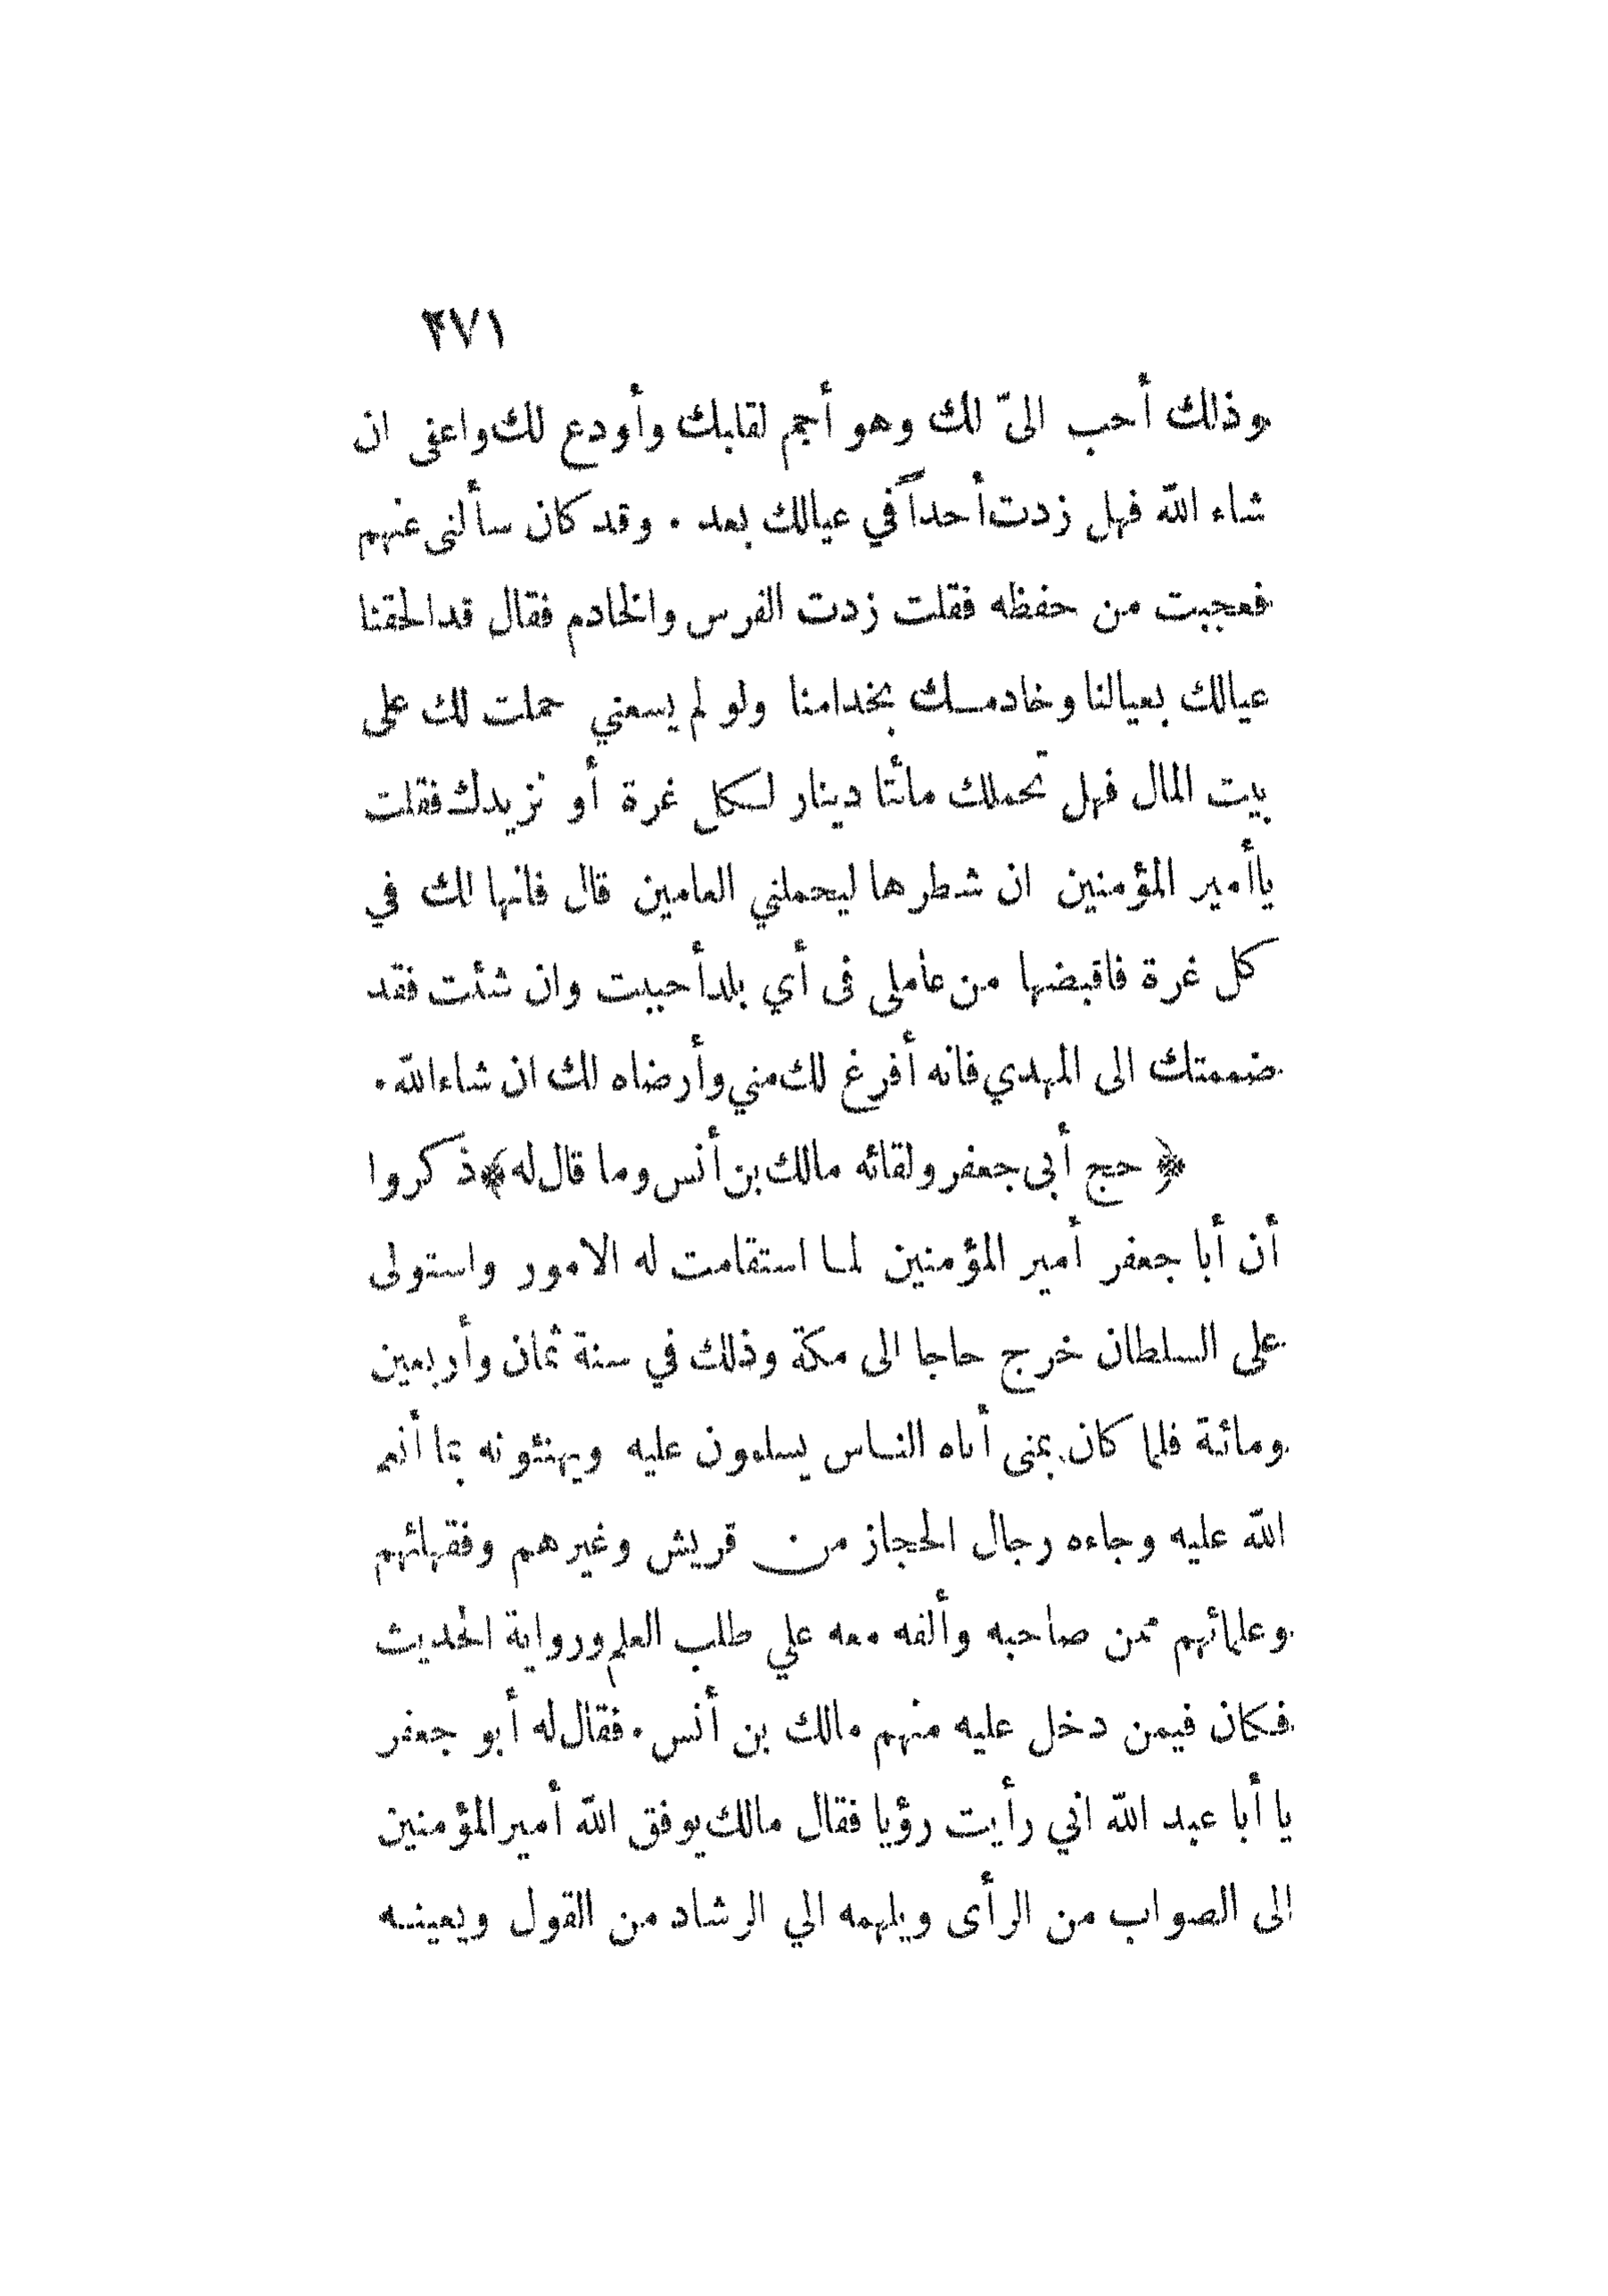 ٢٧١
وذلك أحب الىّ لك وهو أجم لقابك وأودع لك واعفى ان
شاء الله فهل زدت أحداً في عيالك بعد . وقد كان سألنى عنهم
فعجبت من حفظه فقلت زدت الفرس والخادم فقال قد الحقنا
عيالك بعيالنا وخادمك بخدامنا ولو لم يسعني حملت لك على
بيت المال فهل تحملك مائتا دينار لكل غرة أو نزيدك فقلت
ياأمير المؤمنين ان شطرها ليحملني العامين قال فانها لك في
كل غرة فاقبضها من عاملى فى أي بلد أحببت وان شئت فقد
ضممتك الى المهدي فانه أفرغ لك مني وأرضاه لك ان شاء الله .
﴿ حج أبى جعفر ولقائه مالك بن أنس وما قال له ﴾ ذكروا
أن أبا جعفر أمير المؤمنين لما استقامت له الامور واستولى
على السلطان خرج حاجا الى مكة وذلك في سنة ثمان وأربعين
ومائة فلما كان بمنى أتاه الناس يسلمون عليه ويهنئونه بما أنعم
الله عليه وجاءه رجال الحجاز من قريش وغيرهم وفقهائهم
وعلمائهم ممن صاحبه وألفه معه علي طلب العلم ورواية الحديث
فكان فيمن دخل عليه منهم مالك بن أنس . فقال له أبو جعفر
يا أبا عبد الله اني رأيت رؤيا فقال مالك يوفق الله أمير المؤمنين
الى الصواب من الرأى ويلهمه الي الرشاد من القول ويعينه